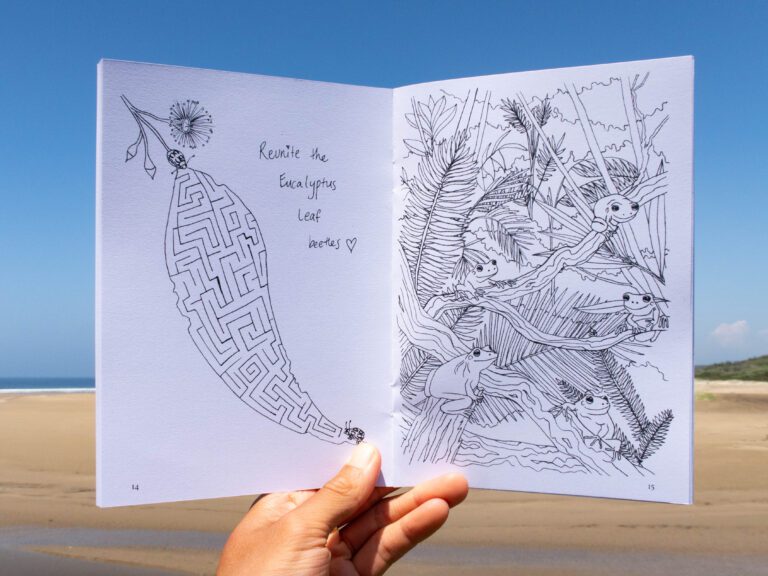 Reunite the
Eucalyptus
leaf
beetles ♡
14
15